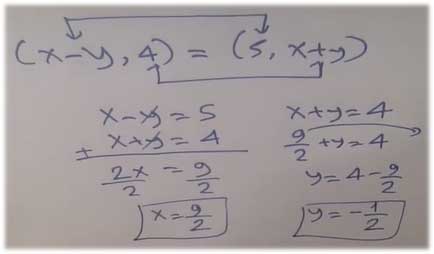 (x-y, 4) = (5, x+y)
x-y=5
+ x+y=4
2x/2 = 9/2
x=9/2
x+y=4
9/2+y=4
y=4-9/2
y=-1/2